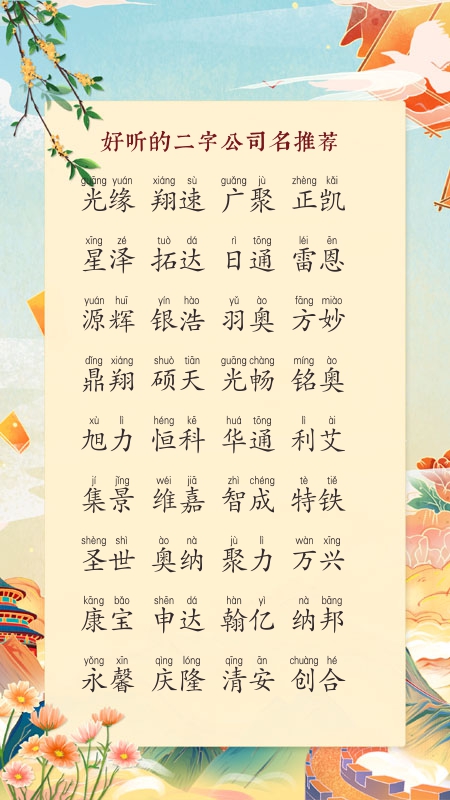 好听的二字公司名推荐
guāng yuán xiáng sù guǎng jù zhèng kǎi
光缘 翔速 广聚 正凯
xīng zé tuò dá rì tōng léi ēn
星泽 拓达 日通 雷恩
yuán huī yín hào yǔ ào fāng miào
源辉 银浩 羽奥 方妙
dǐng xiáng shuò tiān guāng chàng míng ào
鼎翔 硕天 光畅 铭奥
xù lì héng kē huá tōng lì ài
旭力 恒科 华通 利艾
jí jǐng wéi jiā zhì chéng tè tiě
集景 维嘉 智成 特铁
shèng shì ào nà jù lì wàn xīng
圣世 奥纳 聚力 万兴
kāng bǎo shēn dá hàn yì nà bāng
康宝 申达 翰亿 纳邦
yǒng xīn qìng lóng qīng ān chuàng hé
永馨 庆隆 清安 创合